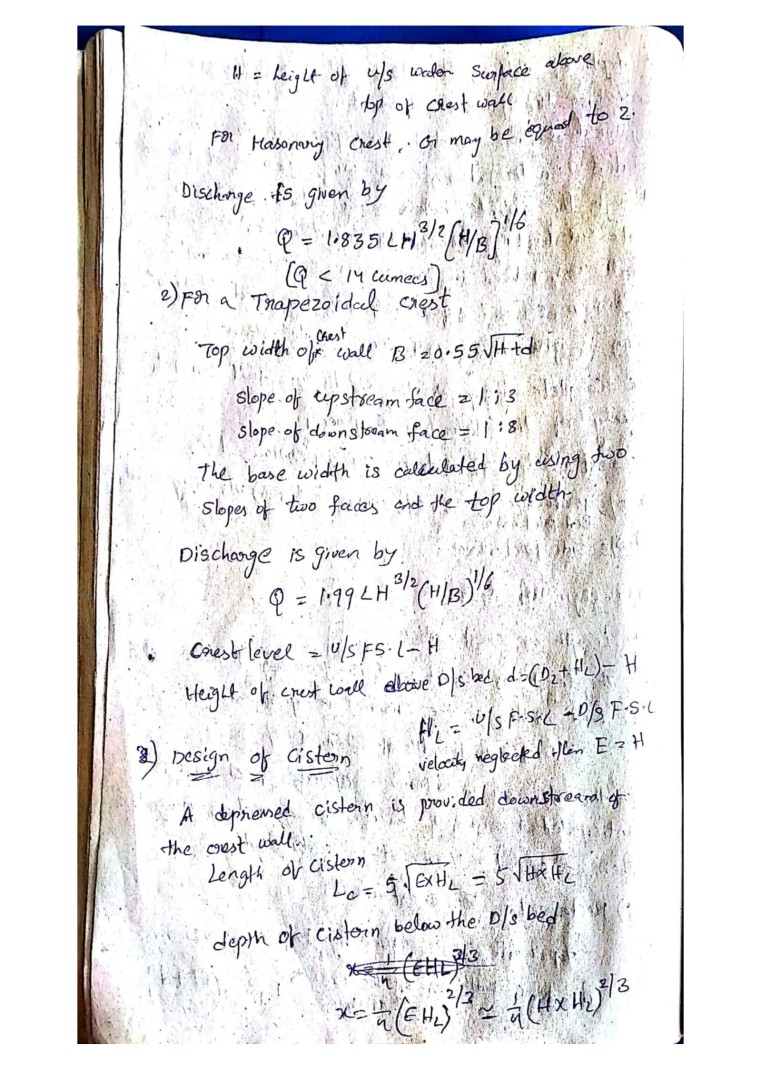 H = height of u/s water surface above
top of crest wall
For Masonary crest, G may be equal to 2.
Discharge is given by
Q = 1.835 LH^3/2 [H/B]^1/6
[Q < 14 cumecs]
2) For a Trapezoidal crest
Top width of crest wall B = 0.55 √H+d
Slope of upstream face = 1:3
Slope of downstream face = 1:8
The base width is calculated by using two
slopes of two faces and the top width.
Discharge is given by
Q = 1.99 LH^3/2 (H/B)^1/6
Crest level = U/S F.S.L - H
Height of crest wall above D/s bed, d = (D₂ + H_L) - H
H_L = U/S F.S.L - D/S F.S.L
velocity neglected then E = H
3) Design of Cistern
A depressed cistern is provided downstream of
the crest wall.
Length of cistern
L_c = 5 √E×H_L = 5 √H×H_L
depth of cistern below the D/s bed
x = 1/4 (EH_L)^2/3
x = 1/4 (E H_L)^2/3 ≃ 1/4 (H×H_L)^2/3